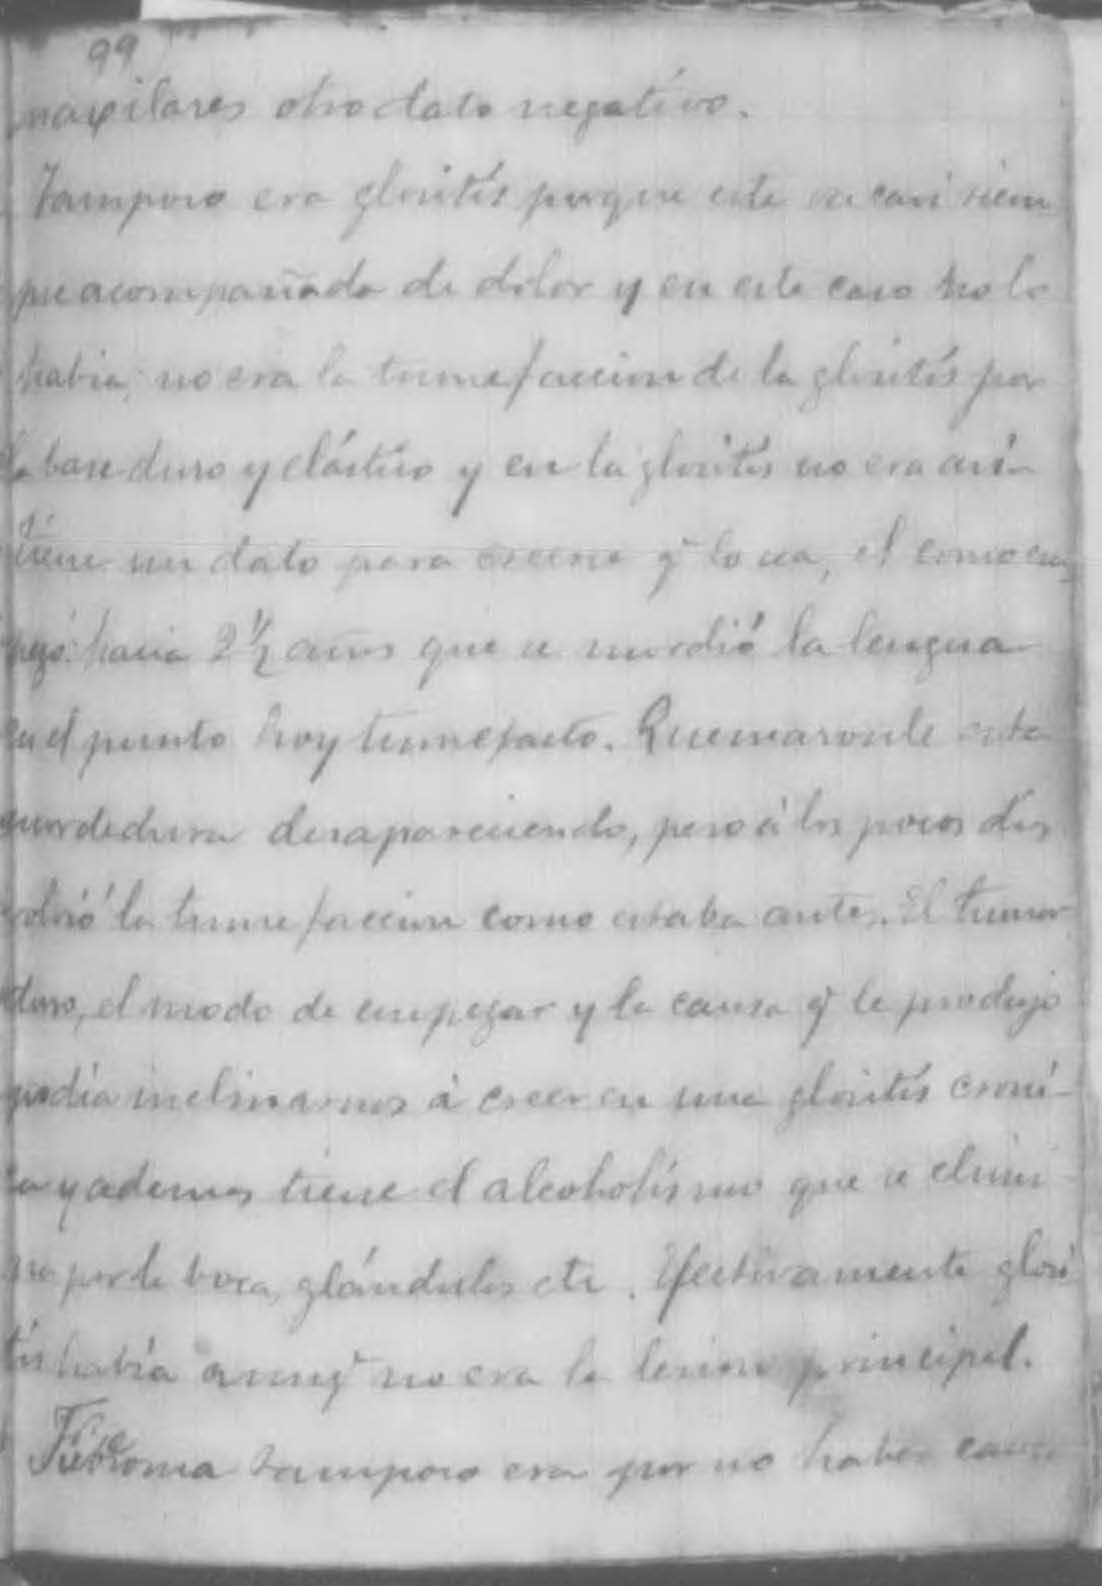 99
maxilares otro dato negativo.
Tampoco era glositis porque esta va casi siem
pre acompañada de dolor y en este caso no lo
habia, no era la tumefaccion de la glositis por
la base duro y elástico y en la glositis no era asi-
tiene un dato para creerse q.e lo sea, el como em
pezó: hacia 2 1/2 años que se mordió la lengua
en el punto hoy tumefacto. Quemaronle esta
mordedura desapareciendo, pero á los pocos dias
volvió la tumefaccion como estaba antes. El tumor
duro, el modo de empezar y la causa q.e le produjo
podía inclinarnos á creer en una glositis croni-
ca y ademas tiene el alcoholismo que se elimi
na por la boca, glándulas etc. Efectivamente glosi
tis había aunq.e no era la lesion principal.
Fibroma tampoco era por no haber causa